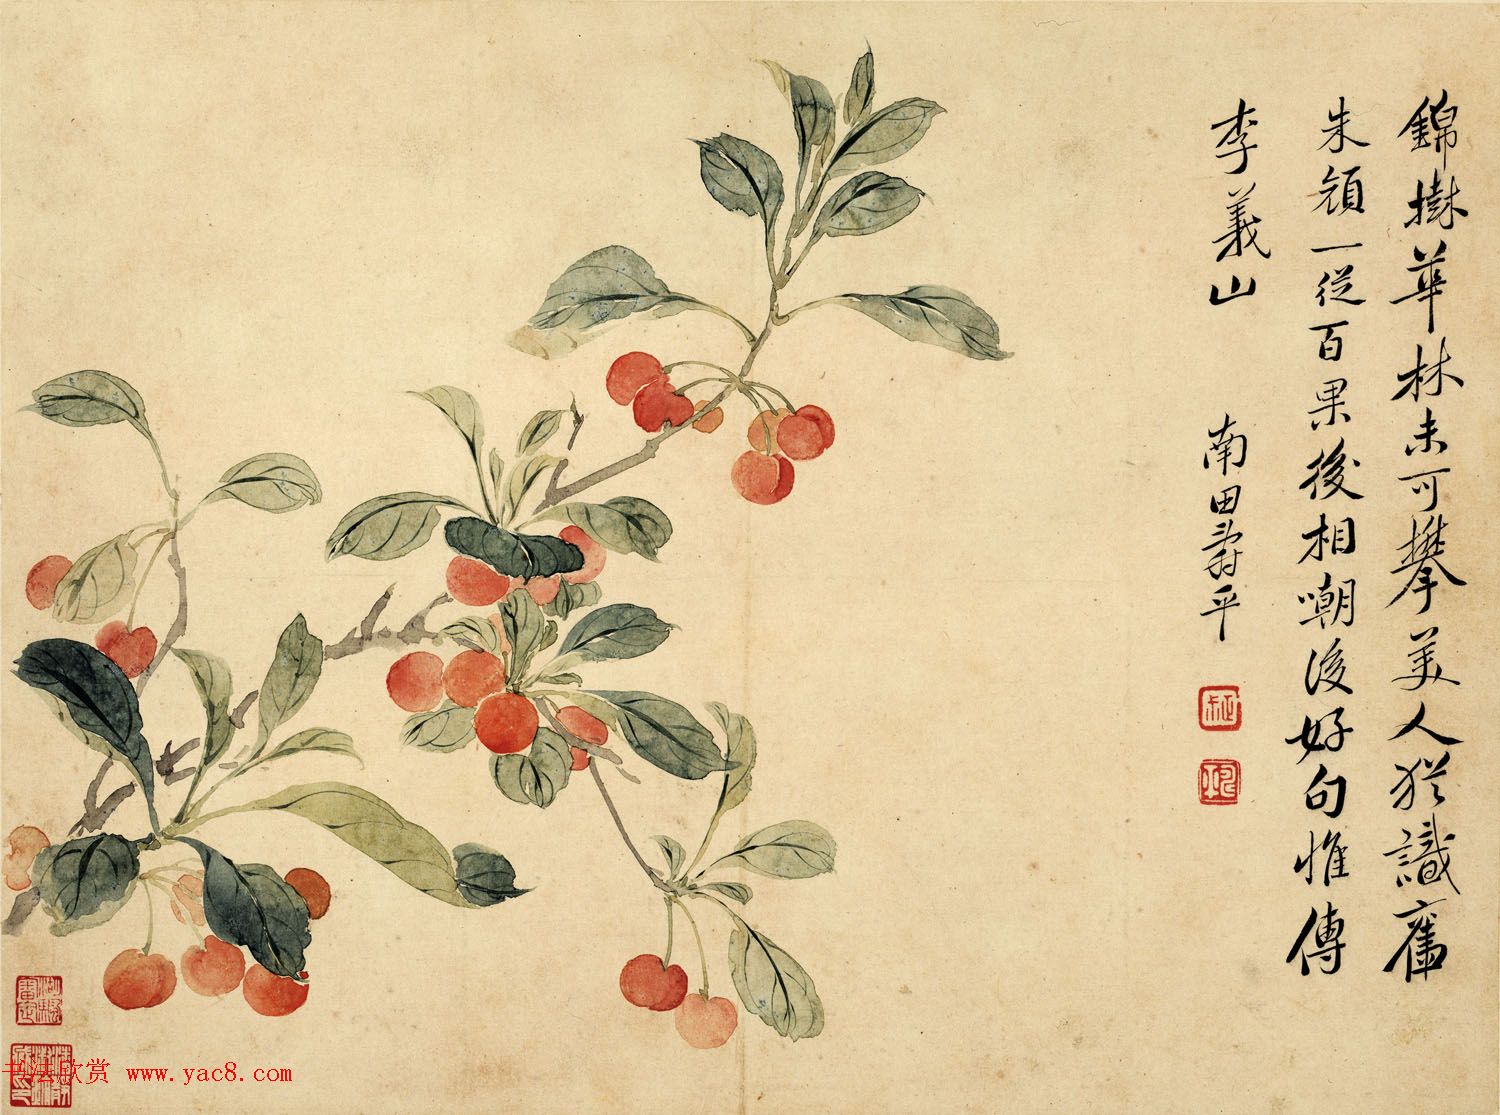 錦樹華林未可攀美人猶識舊
朱顏一從百果後相嘲後好句惟傳
李義山
南田壽平
书法欣赏 www.yac8.com